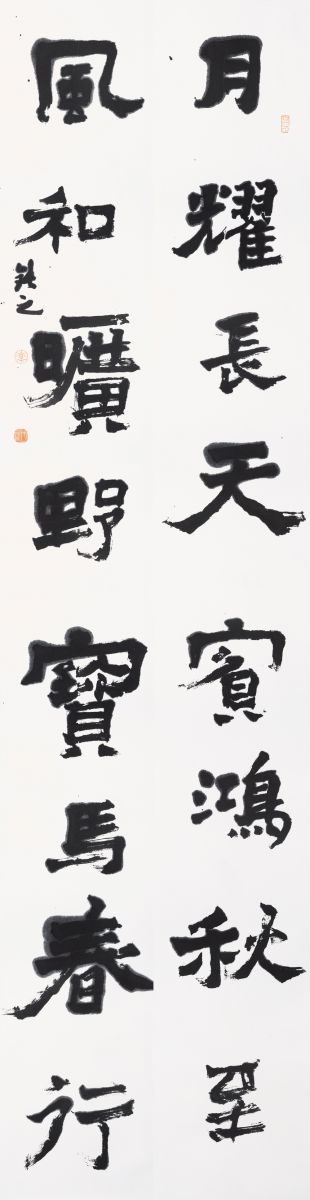 月耀長天賓鴻秋至
風和曠野寶馬春行